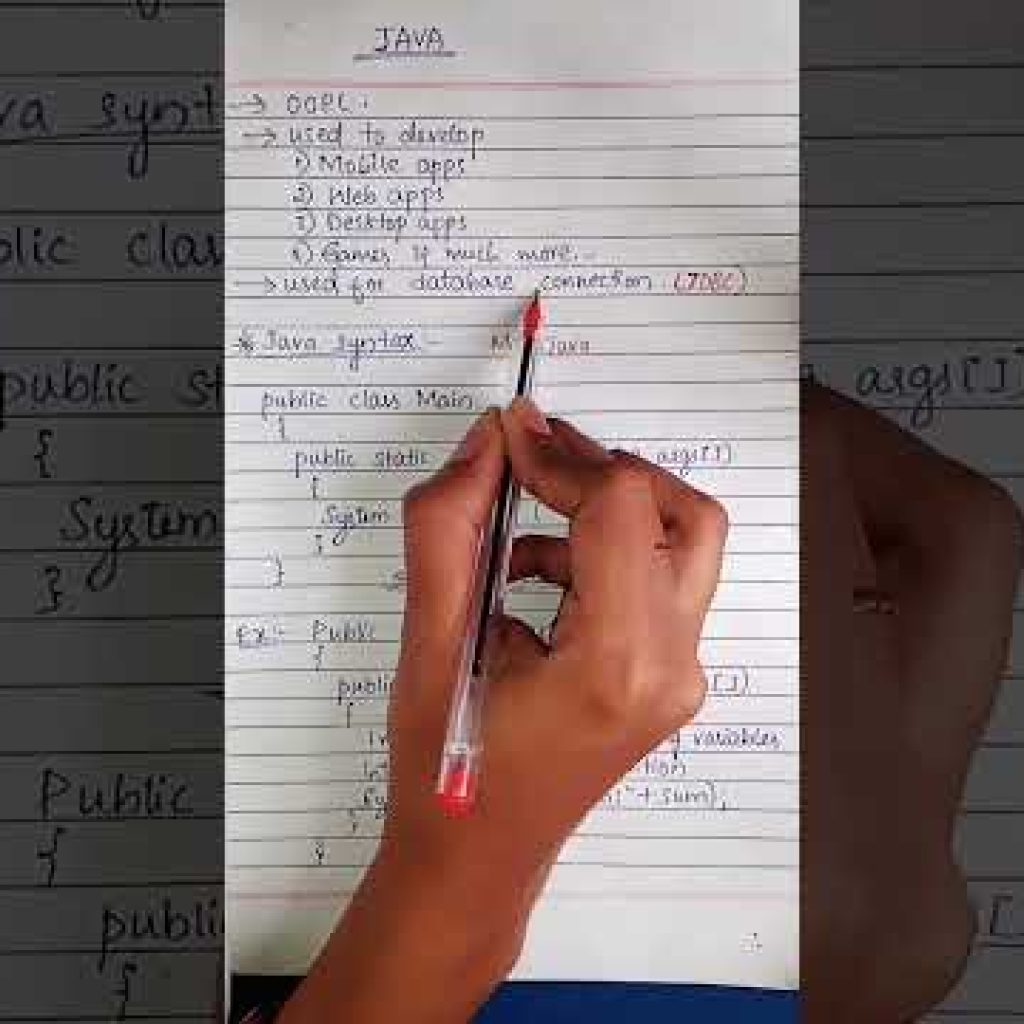 JAVA
→ OOPL.
→ used to develop
1) Mobile apps
2) Web apps
3) Desktop apps
4) Games & much more.
→ used for database connection (JDBC)
* Java syntax - Java
public class Main
{
public static args[])
{
System
}
}
Ex:- Public
{
public [])
{
variables
"+ sum);
}
}